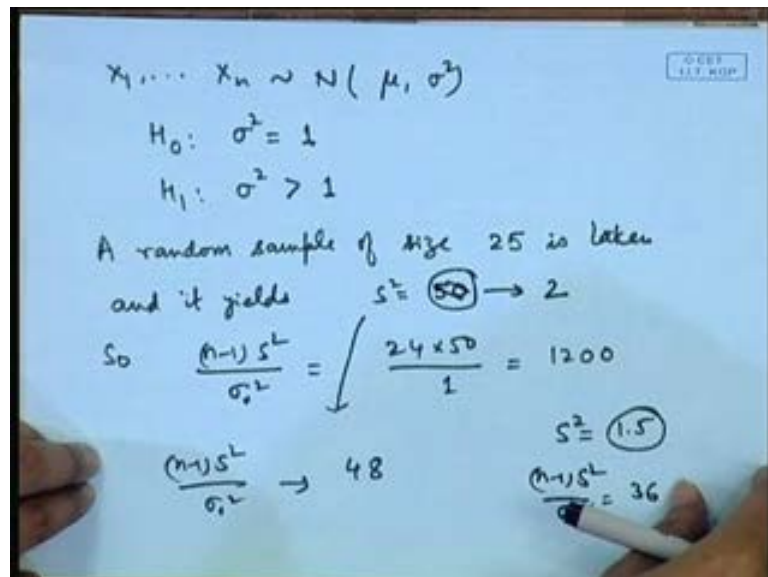 x₁, ... xₙ ~ N( μ, σ²)
© CET
I.I.T. KGP
H₀: σ² = 1
H₁: σ² > 1
A random sample of size 25 is taken
and it yields s² = 50 → 2
So (n-1) s² / σ₀² = 24 x 50 / 1 = 1200
s² = 1.5
(n-1) s² / σ₀² → 48
(n-1) s² / = 36